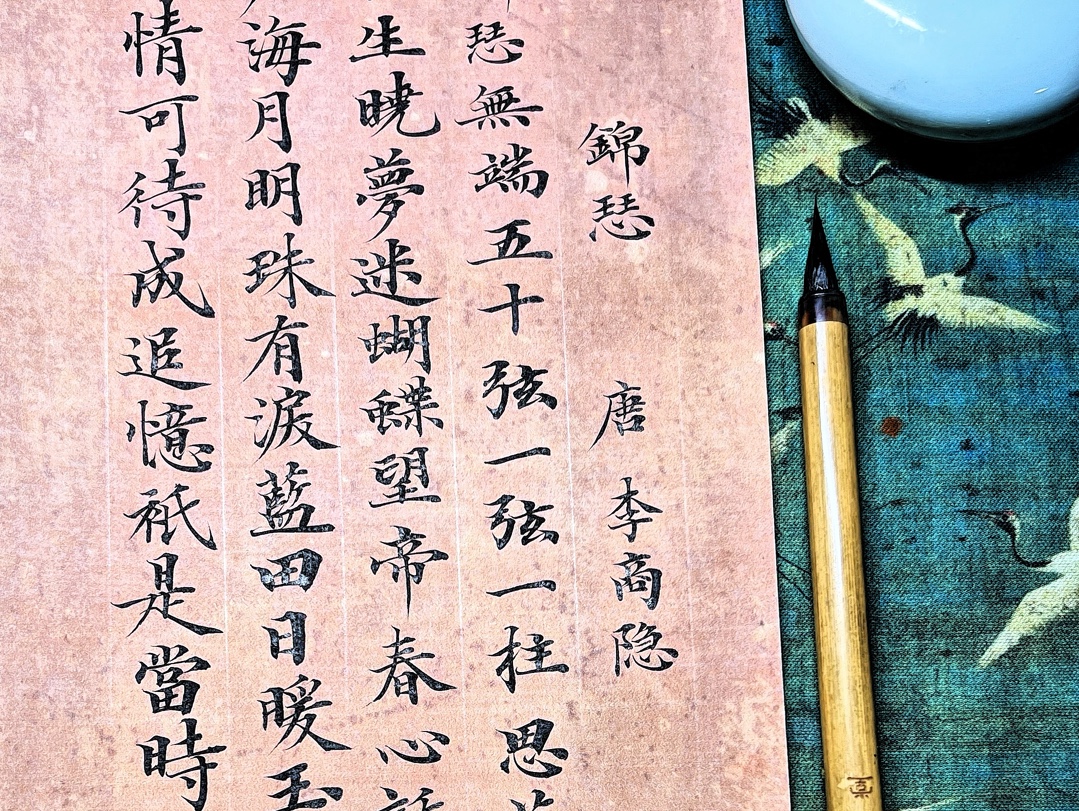 錦瑟 唐 李商隐
瑟無端五十弦一弦一柱思
生曉夢迷蝴蝶望帝春心
海月明珠有淚藍田日暖玉
情可待成追憶祇是當時